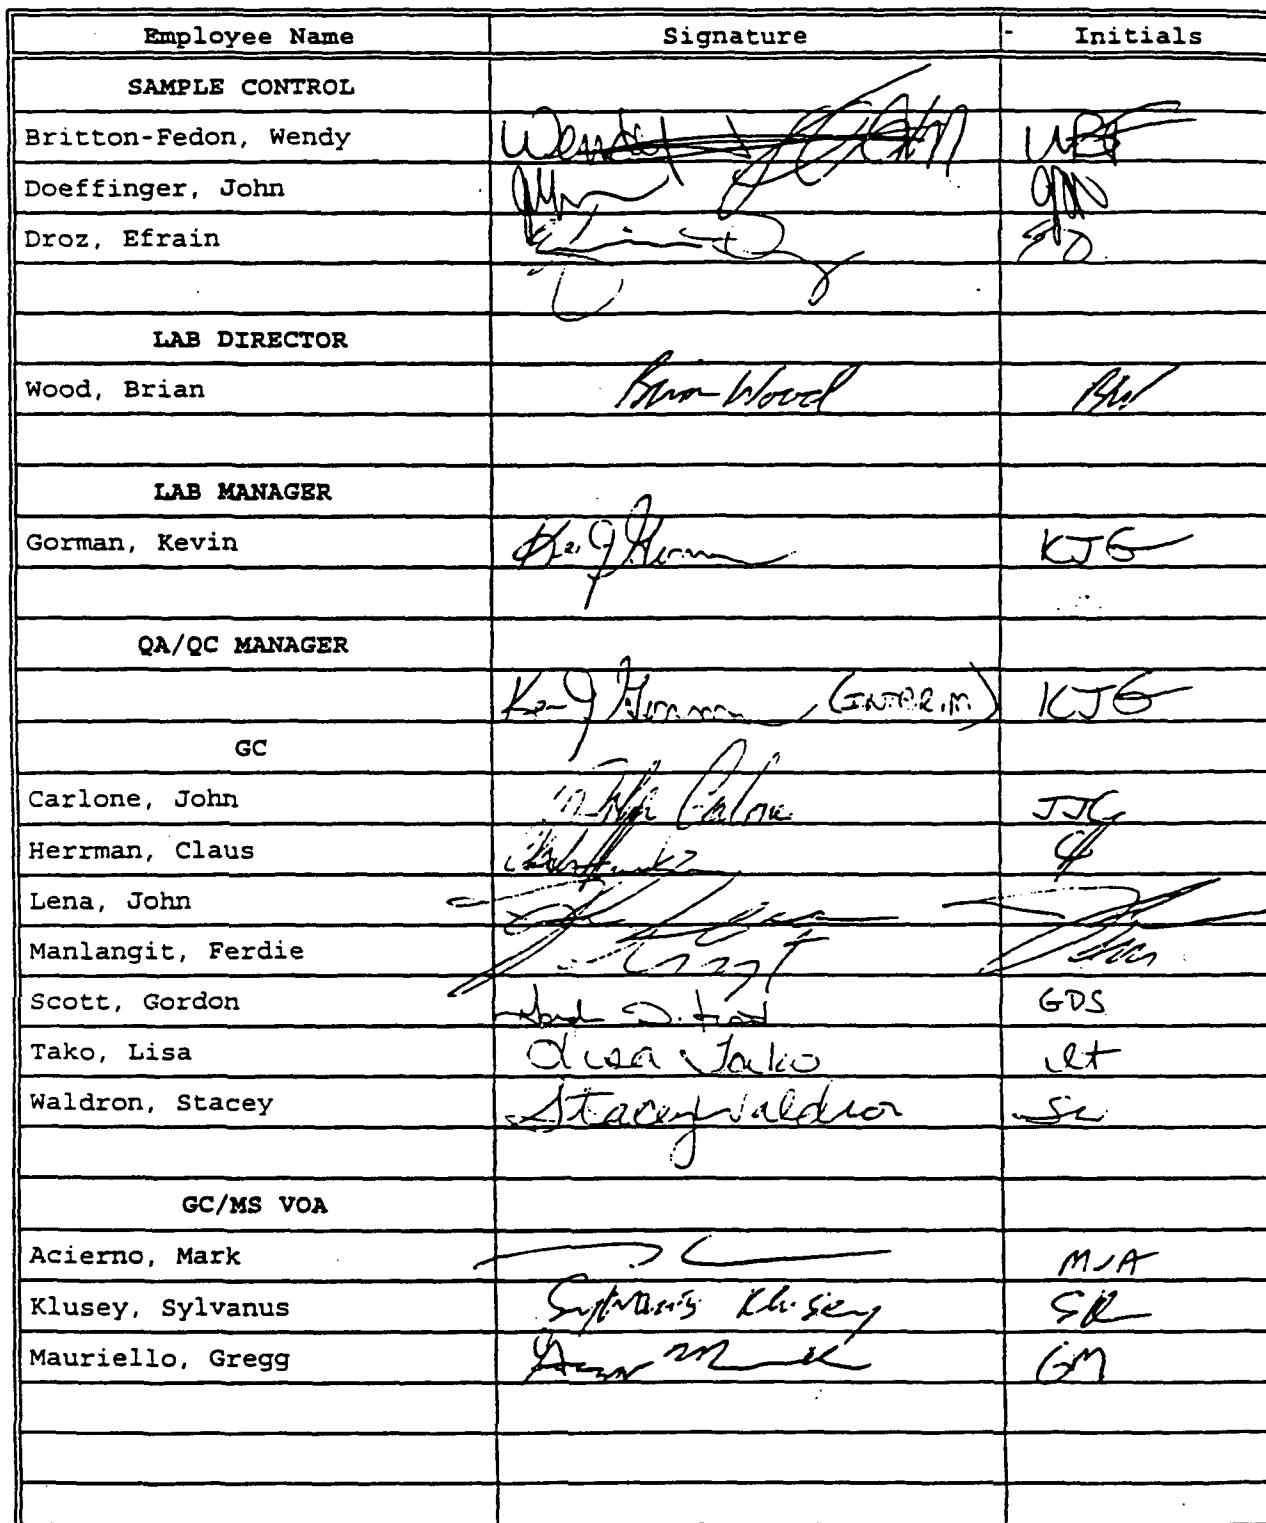 Employee Name Signature Initials
SAMPLE CONTROL
Britton-Fedon, Wendy Wendy WBF
Doeffinger, John
Droz, Efrain ED
LAB DIRECTOR
Wood, Brian Brian Wood BW
LAB MANAGER
Gorman, Kevin KJG
QA/QC MANAGER
(INTERIM) KJG
GC
Carlone, John John Carlone JJC
Herrman, Claus
Lena, John
Manlangit, Ferdie
Scott, Gordon GDS
Tako, Lisa Lisa Tako lt
Waldron, Stacey Stacey Waldron
GC/MS VOA
Acierno, Mark MJA
Klusey, Sylvanus Sylvanus Klusey SK
Mauriello, Gregg GM